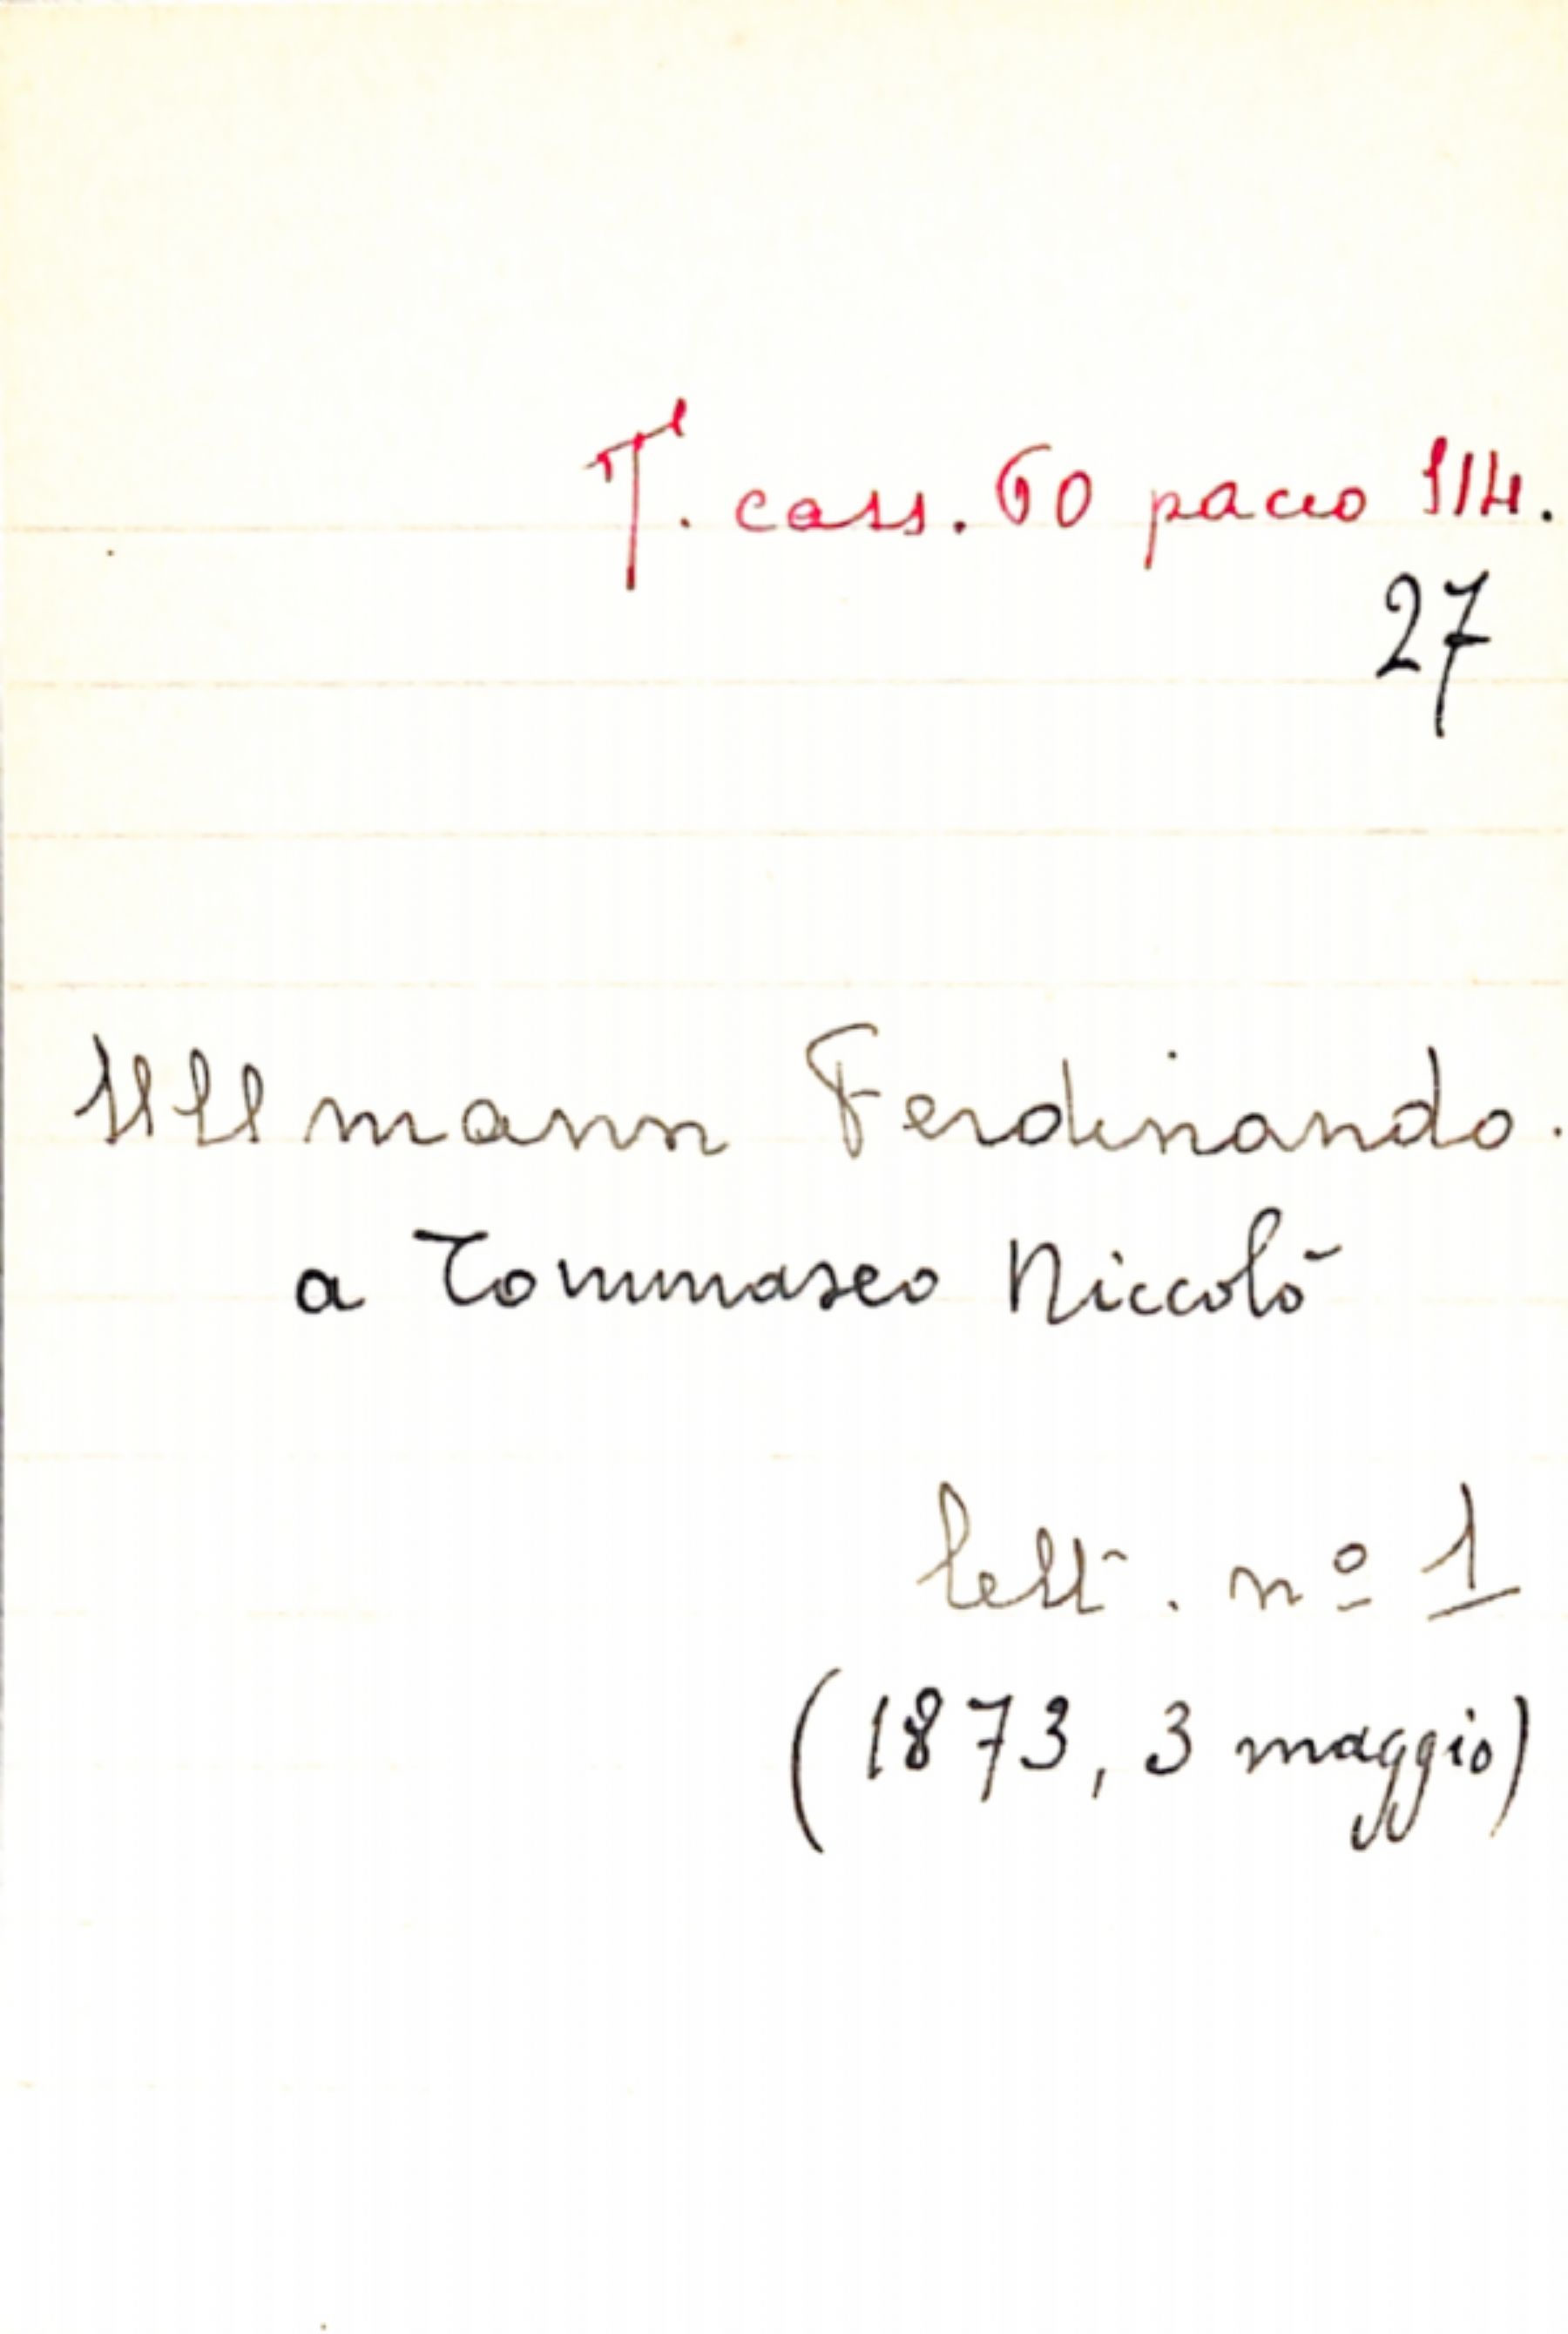 T. cass. 60 pacco 114.
27
Ullmann Ferdinando.
a Tommaseo Niccolò
lett. nº 1
(1873, 3 maggio)